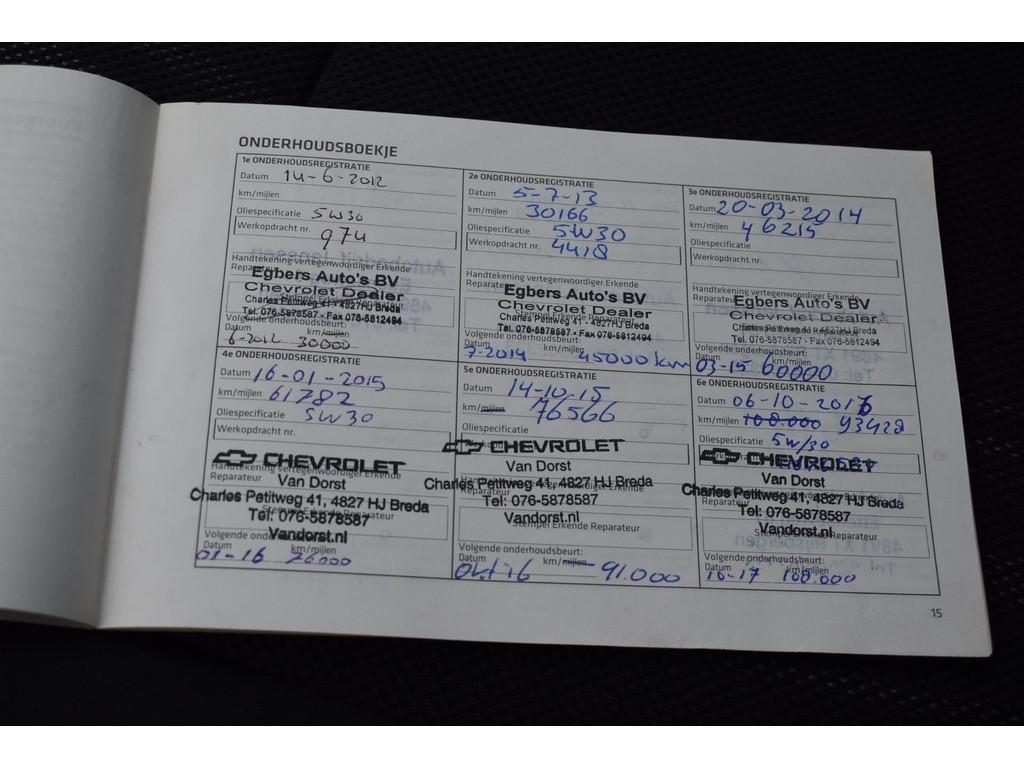 ONDERHOUDSBOEKJE
1e ONDERHOUDSREGISTRATIE
Datum 14-6-2012
km/mijlen
Oliespecificatie 5W30
Werkopdracht nr. 974
Handtekening vertegenwoordiger Erkende
Reparateur
Egbers Auto's BV
Chevrolet Dealer
Charles Petitweg 41 - 4827HJ Breda
Tel. 076-5878587 - Fax 076-5812494
Volgende onderhoudsbeurt:
Datum km/mijlen
6-2012 30000
2e ONDERHOUDSREGISTRATIE
Datum 5-7-13
km/mijlen 30166
Oliespecificatie 5W30
Werkopdracht nr. 4418
Handtekening vertegenwoordiger Erkende
Reparateur
Egbers Auto's BV
Chevrolet Dealer
Stempel Erkende Reparateur
Charles Petitweg 41 - 4827HJ Breda
Tel. 076-5878587 - Fax 076-5812494
Volgende onderhoudsbeurt:
Datum km/mijlen
7-2014 45000 km
3e ONDERHOUDSREGISTRATIE
Datum 20-03-2014
km/mijlen 46215
Oliespecificatie
Werkopdracht nr.
Handtekening vertegenwoordiger Erkende
Reparateur
Egbers Auto's BV
Chevrolet Dealer
Charles Petitweg 41 - 4827HJ Breda
Tel. 076-5878587 - Fax 076-5812494
Volgende onderhoudsbeurt:
Datum km/mijlen
03-15 60000
4e ONDERHOUDSREGISTRATIE
Datum 16-01-2015
km/mijlen 61782
Oliespecificatie 5W30
Werkopdracht nr.
CHEVROLET
Handtekening vertegenwoordiger Erkende
Reparateur
Van Dorst
Charles Petitweg 41, 4827 HJ Breda
Tel: 076-5878587
Vandorst.nl
Volgende onderhoudsbeurt:
Datum km/mijlen
01-16 76000
5e ONDERHOUDSREGISTRATIE
Datum 14-10-15
km/mijlen 76566
Oliespecificatie
CHEVROLET
Van Dorst
Reparateur
Charles Petitweg 41, 4827 HJ Breda
Tel: 076-5878587
Vandorst.nl
Stempel Erkende Reparateur
Volgende onderhoudsbeurt:
Datum km/mijlen
okt 16 91.000
6e ONDERHOUDSREGISTRATIE
Datum 06-10-2016
km/mijlen 108.000 93428
Oliespecificatie 5W/30
CHEVROLET
Van Dorst
Reparateur
Charles Petitweg 41, 4827 HJ Breda
Tel: 076-5878587
Stempel Erkende Reparateur
Vandorst.nl
Volgende onderhoudsbeurt:
Datum km/mijlen
10-17 108.000
15